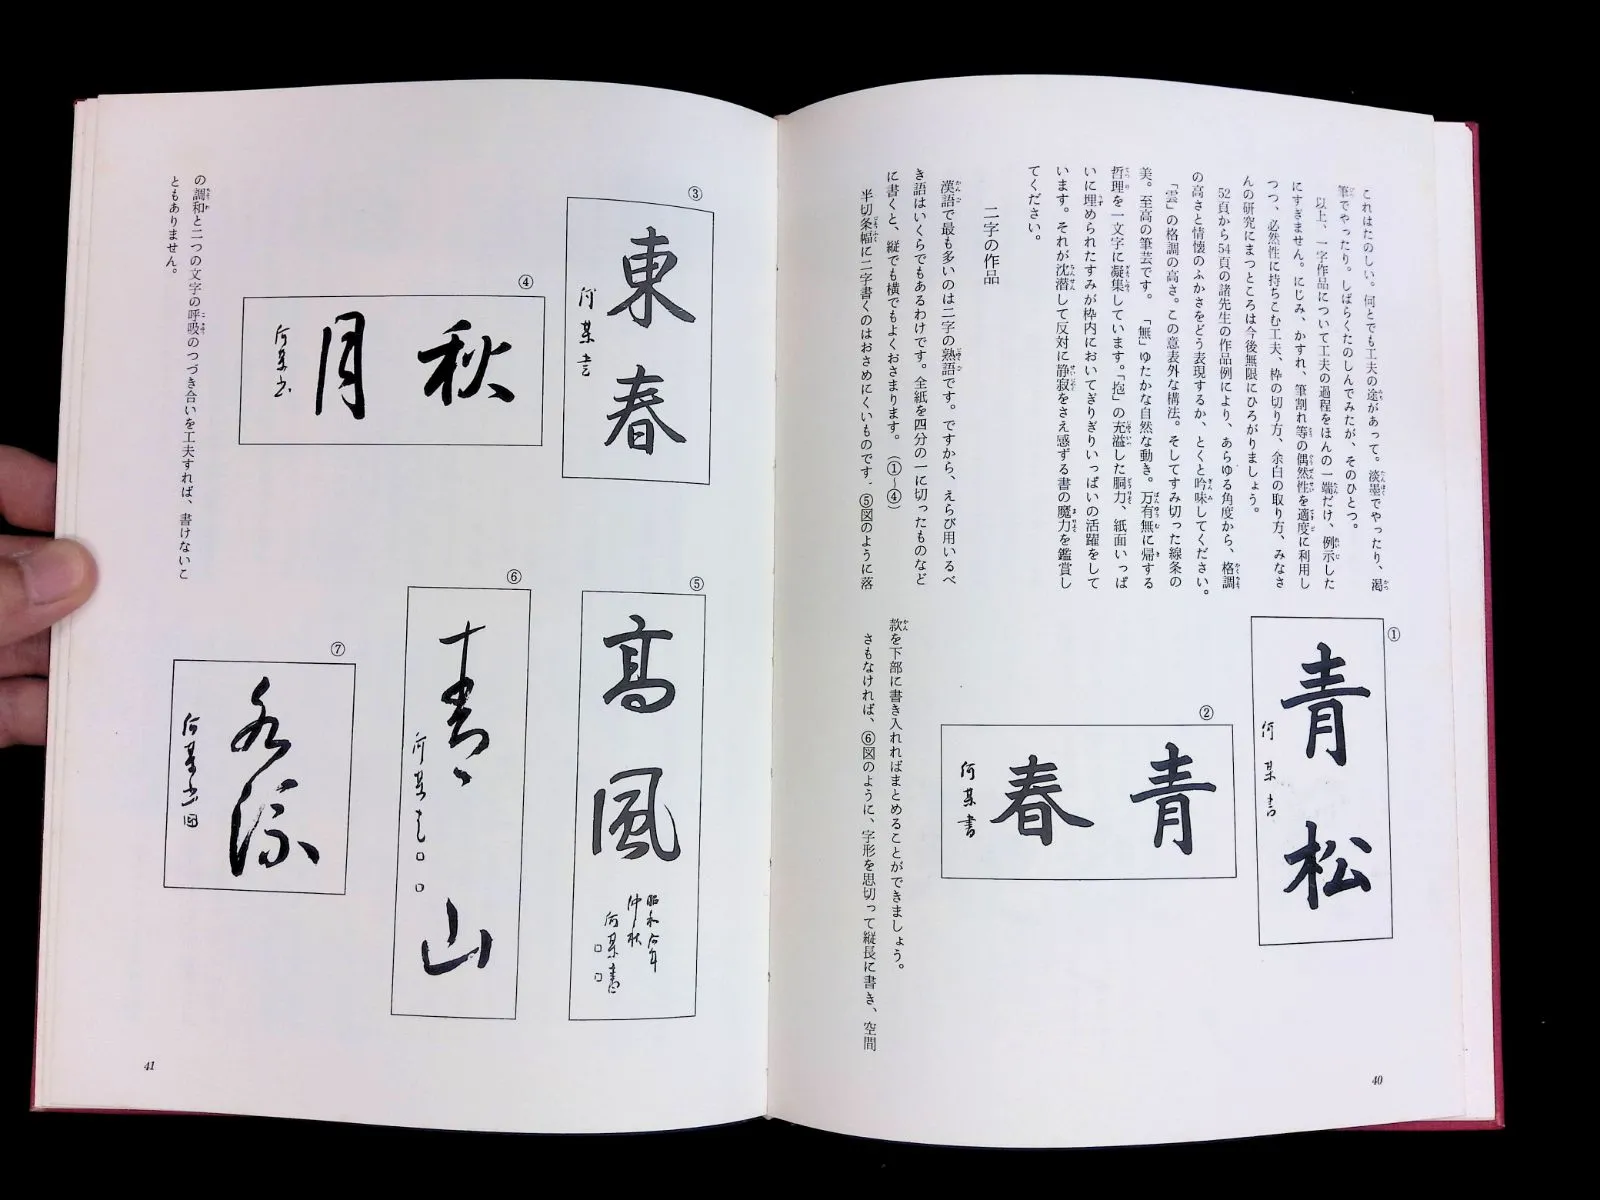 これはたのしい。何とでも工夫の途があって。淡墨でやったり、渇
筆でやったり。しばらくたのしんでみたが、そのひとつ。
以上、一字作品について工夫の過程をほんの一端だけ、例示した
にすぎません。にじみ、かすれ、筆割れ等の偶然性を適度に利用し
つつ、必然性に持ちこむ工夫、枠の切り方、余白の取り方、みなさ
んの研究にまつところは今後無限にひろがりましょう。
52頁から54頁の諸先生の作品例により、あらゆる角度から、格調
の高さと情懐のふかさをどう表現するか、とくと吟味してください。
「雲」の格調の高さ。この意表外な構法。そしてすみ切った線条の
美。至高の筆芸です。「無」ゆたかな自然な動き。万有無に帰する
哲理を一文字に凝集しています。「抱」の充溢した胴力、紙面いっぱ
いに埋められたすみが枠内においてぎりぎりいっぱいの活躍をして
います。それが沈潜して反対に静寂をさえ感ずる書の魔力を鑑賞し
てください。
二字の作品
漢語で最も多いのは二字の熟語です。ですから、えらび用いるべ
き語はいくらでもあるわけです。全紙を四分の一に切ったものなど
に書くと、縦でも横でもよくおさまります。(①~④)
半切条幅に二字書くのはおさめにくいものです。⑤図のように落
款を下部に書き入れればまとめることができましょう。
さもなければ、⑥図のように、字形を思切って縦長に書き、空間
①
青松
何某書
②
青春
何某書
40
③
東春
何某書
④
秋月
何某書
⑤
高風
仲秋
何某書
⑥
青山
何某
⑦
何某書
の調和と二つの文字の呼吸のつづき合いを工夫すれば、書けないこ
ともありません。
41